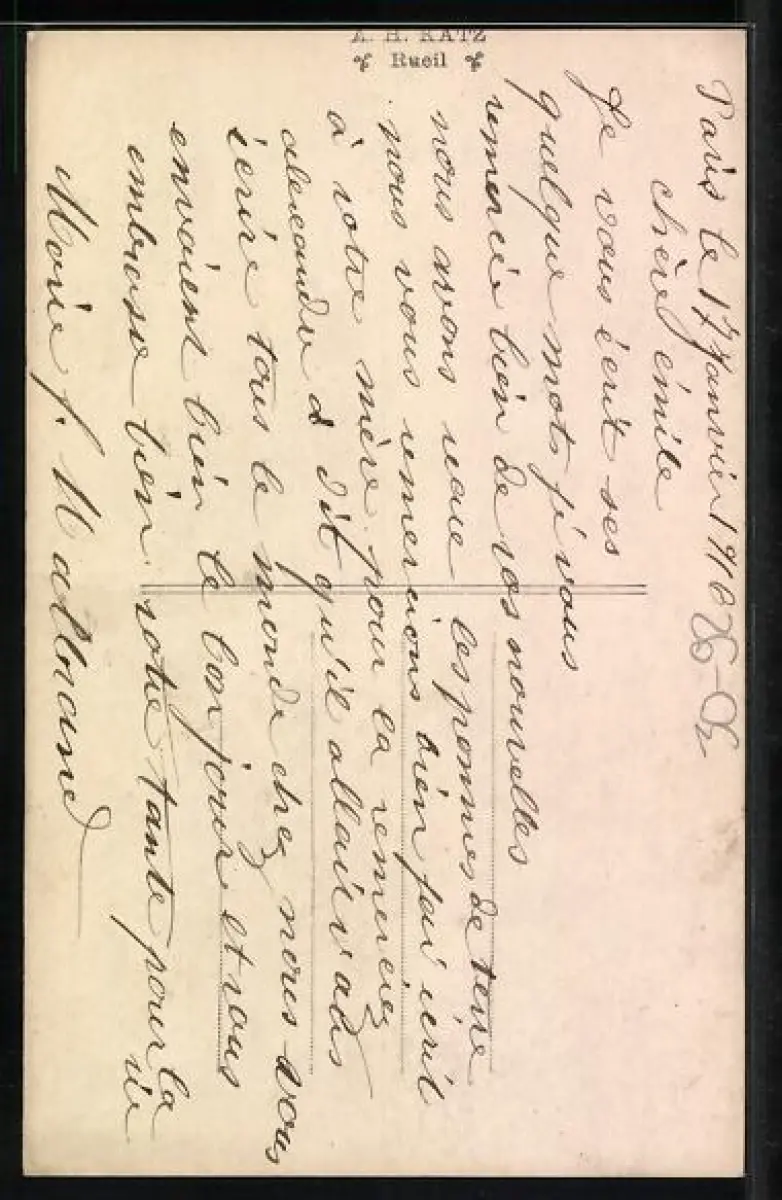 A. H. KATZ
Rueil
Paris le 17 Janvier 1910
chère émile
Je vous écrit ses
quelque mots je vous
remercie bien de vos nouvelles
nous avons reçue les pommes de terre
nous vous remercions bien j'ai écrit
à votre mère pour la remerciez
alexandre a dit qu'il allait vous
écrire tous le monde chez nous vous
envoient bien le bonjour et vous
embrasse bien votre tante pour la
vie
Marie J.